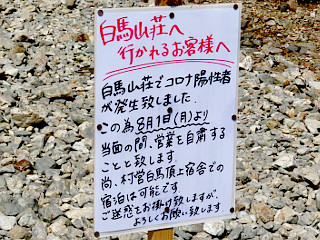 白馬山荘へ
行かれるお客様へ
白馬山荘でコロナ陽性者
が発生致しました.
この為8月1日(月)より
当面の間、営業を自粛する
ことと致します.
尚、村営白馬頂上宿舎での
宿泊は可能です.
ご迷惑をお掛け致しますが、
よろしくお願い致します